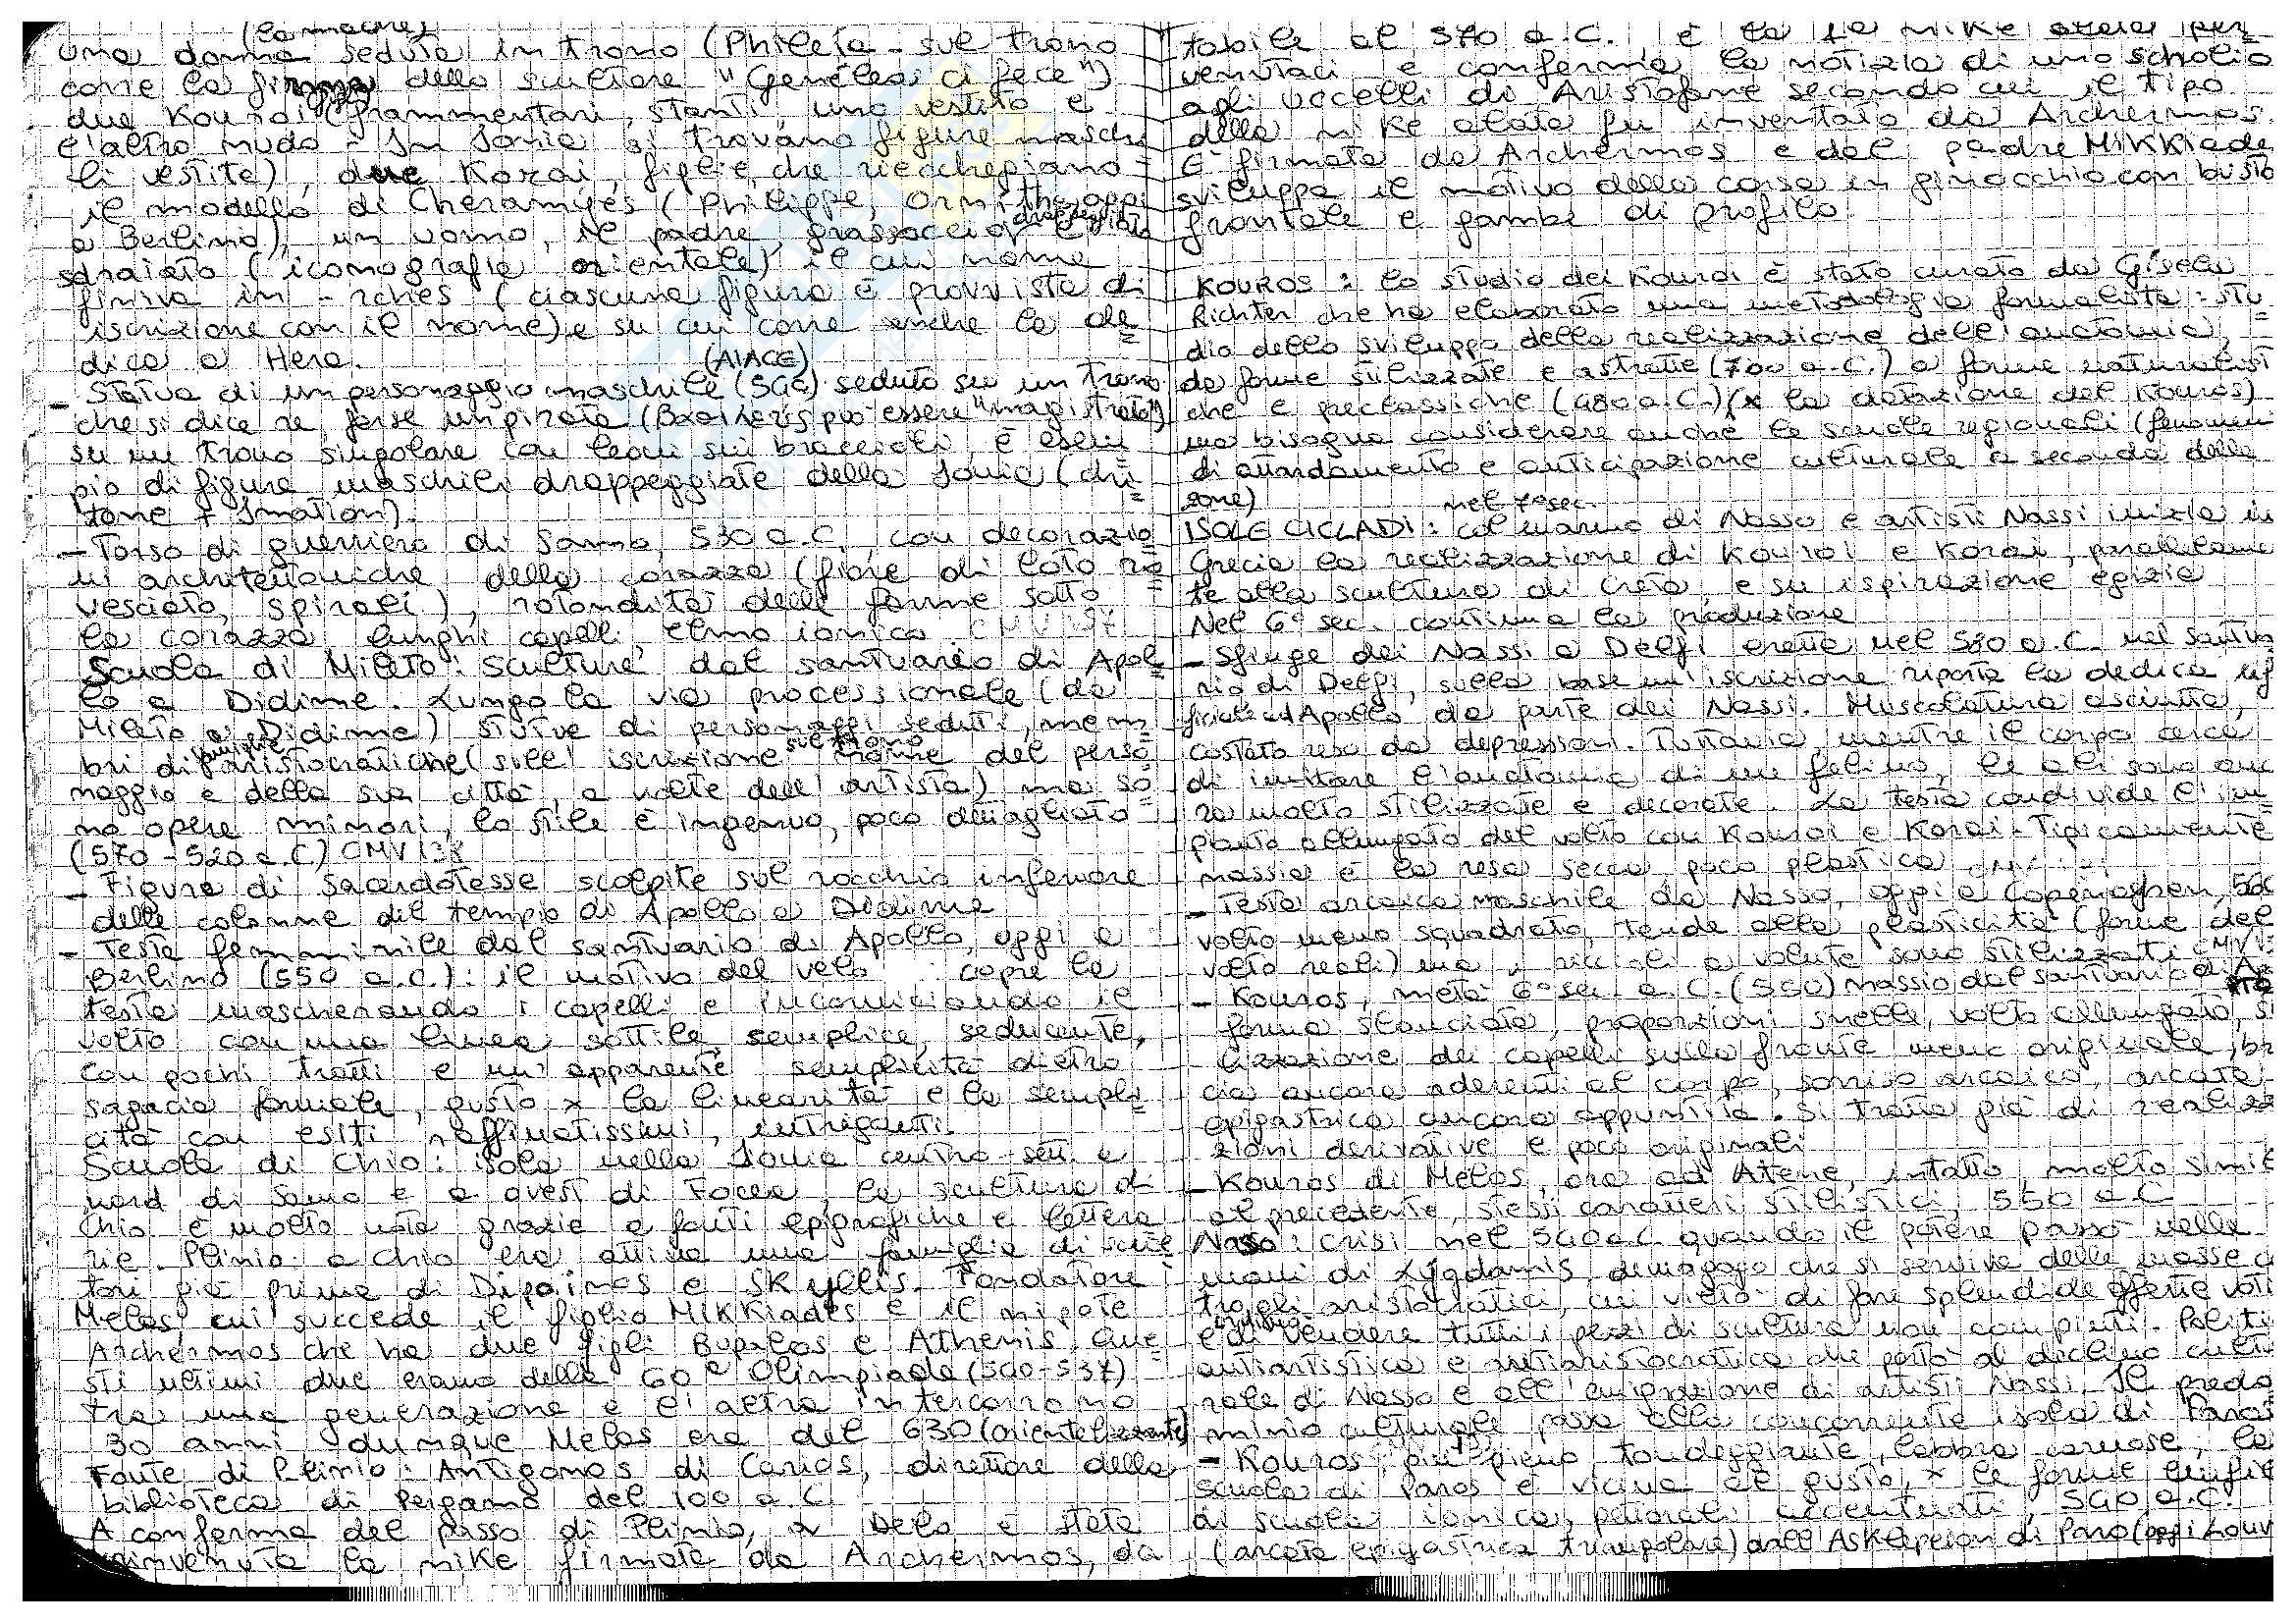 (la madre)
una donna seduta in trono (Phileia - sul trono
corre la firma dello scultore "Genéleos ci fece")
due Kouroi (frammentari, stanti, uno vestito e
l'altro nudo - In Ionia si trovano figure maschi
li vestite), due Korai, figlie, che riecheggiano
il modello di Cheramyes (Philippe, Ornithe oggi
a Berlino), un uomo, il padre, grassoccio drappeggiato e
sdraiato (iconografia orientale) il cui nome
finiva in -rches (ciascuna figura è provvista di
iscrizione con il nome) e su cui corre anche la de
dica a Hera.
(AIACE)
- Statua di un personaggio maschile (560) seduto su un trono
che si dice re forse un pirata ( può essere "magistrato")
su un trono singolare con leoni sui braccioli, è esem
pio di figure maschili drappeggiate della Ionia (chi
tone + Imation).
- Torso di guerriero di Samo, 530 a.C., con decorazio
ni architettoniche della corazza (fiore di loto ro
vesciato, spirali), rotondità delle forme sotto
la corazza, lunghi capelli, elmo ionico. CMV 37
Scuola di Mileto: sculture dal santuario di Apol
lo a Didime. Lungo la via processionale (da
Mileto a Didime) statue di personaggi seduti, mem
bri di famiglie aristocratiche (sull'iscrizione sul trono nome del perso
naggio e della sua città, a volte dell'artista) ma so
no opere minori, lo stile è ingenuo, poco dettagliato
(570 - 520 a.C) CMV 38
- Figura di Sacerdotesse scolpite sul rocchio inferiore
delle colonne del tempio di Apollo a Didime
- Testa femminile dal santuario di Apollo, oggi a
Berlino (550 a.C.): il motivo del velo copre la
testa mascherando i capelli e incorniciando il
volto con una linea sottile, semplice, seducente,
con pochi tratti e un'apparente semplicità dietro
sagacia formale, gusto x la linearità e la sempli
cità con esiti raffinatissimi, intriganti.
Scuola di Chio: isola nella Ionia centro-sett. a
nord di Samo e a ovest di Focea, la scultura di
Chio è molto nota grazie a fonti epigrafiche e lettera
rie. Plinio: a Chio era attiva una famiglia di scul
tori già prima di Dipoinos e Skyllis. Fondatore
Melas, cui succede il figlio MIKKiades e il nipote
Archermos che ha due figli Bupalos e Athenis, que
sti ultimi due erano della 60ª Olimpiade (540-537)
tra una generazione e l'altra intercorrono
30 anni, dunque Melas era del 630 (orientalizzante)
Fonte di Plinio: Antigonos di Carios, direttore della
biblioteca di Pergamo del 100 a.C.
A conferma del passo di Plinio, a Delo è stata
rinvenuta la nike firmata da Archermos, da
tabile al 570 a.C., è la 1a nike alata per
venutaci e conferma la notizia di uno scholio
agli Uccelli di Aristofane secondo cui il tipo
della nike alata fu inventato da Archermos.
È firmata da Archermos e dal padre Mikkiade
sviluppa il motivo della corsa in ginocchio con busto
frontale e gambe di profilo.
KOUROS: lo studio dei Kouroi è stato curato da Gisela
Richter che ha elaborato una metodologia formalista: stu
dio dello sviluppo della realizzazione dell'anatomia,
da forme stilizzate e astratte (700 a.C.) a forme naturalisti
che e preclassiche (480 a.C.) (x la datazione del Kouros)
ma bisogna considerare anche le scuole regionali (fenomeni
di attardamento e anticipazione culturale a seconda delle
zone)
nel 7° sec.
ISOLE CICLADI: col marmo di Nasso e artisti Nassi inizia in
Grecia la realizzazione di Kouroi e Korai, parallelamen
te alla scultura di Creta, e su ispirazione egizia
Nel 6° sec. continua la produzione
- Sfinge dei Nassi a Delfi eretta nel 580 a.C. nel santua
rio di Delfi, sulla base un'iscrizione riporta la dedica uf
ficiale ad Apollo da parte dei Nassi. Muscolatura asciutta,
costato reso da depressioni. Tuttavia, mentre il corpo cerca
di imitare l'anatomia di un felino, le ali sono anco
ra molto stilizzate e decorate. La testa condivide l'im
pianto allungato del volto con Kouroi e Korai. Tipicamente
nassia è la resa secca poco plastica
- Testa arcaica maschile da Nasso, oggi a Copenaghen, 560
volto meno squadrato, tende alla plasticità (forme del
volto reali) ma i riccioli a volute sono stilizzati CMV
- Kouros, metà 6° sec. a.C. (550) nassio dal santuario di
forma slanciata, proporzioni snelle, volto allungato, sti
lizzazione dei capelli sulla fronte meno originale, brac
cia ancora aderenti al corpo, sorriso arcaico, arcata
epigastrica ancora appuntita. Si tratta già di realizza
zioni derivative e poco originali
- Kouros di Melos, ora ad Atene, intatto, molto simile
al precedente, stessi caratteri stilistici, 550 a.C
Nasso: crisi nel 540 a.C quando il potere passò nelle
mani di Lygdamis, demagogo che si serviva delle masse con
tro gli aristocratici, cui vietò di fare splendide offerte voti
e ordinò di vendere tutti i pezzi di scultura non compiuti. Politi
antiartistica e antiaristocratica che portò al declino cultu
rale di Nasso e all'emigrazione di artisti Nassi. Il predo
minio culturale passa alla concorrente isola di Paros
- Kouros, più pieno, tondeggiante, labbra carnose, la
scuola di Paros è vicina al gusto x le forme
di scuola ionica, pettorali accentuati, 540 a.C.
(arcata epigastrica triangolare) dall'Asklepieion di Paro (oggi Louv